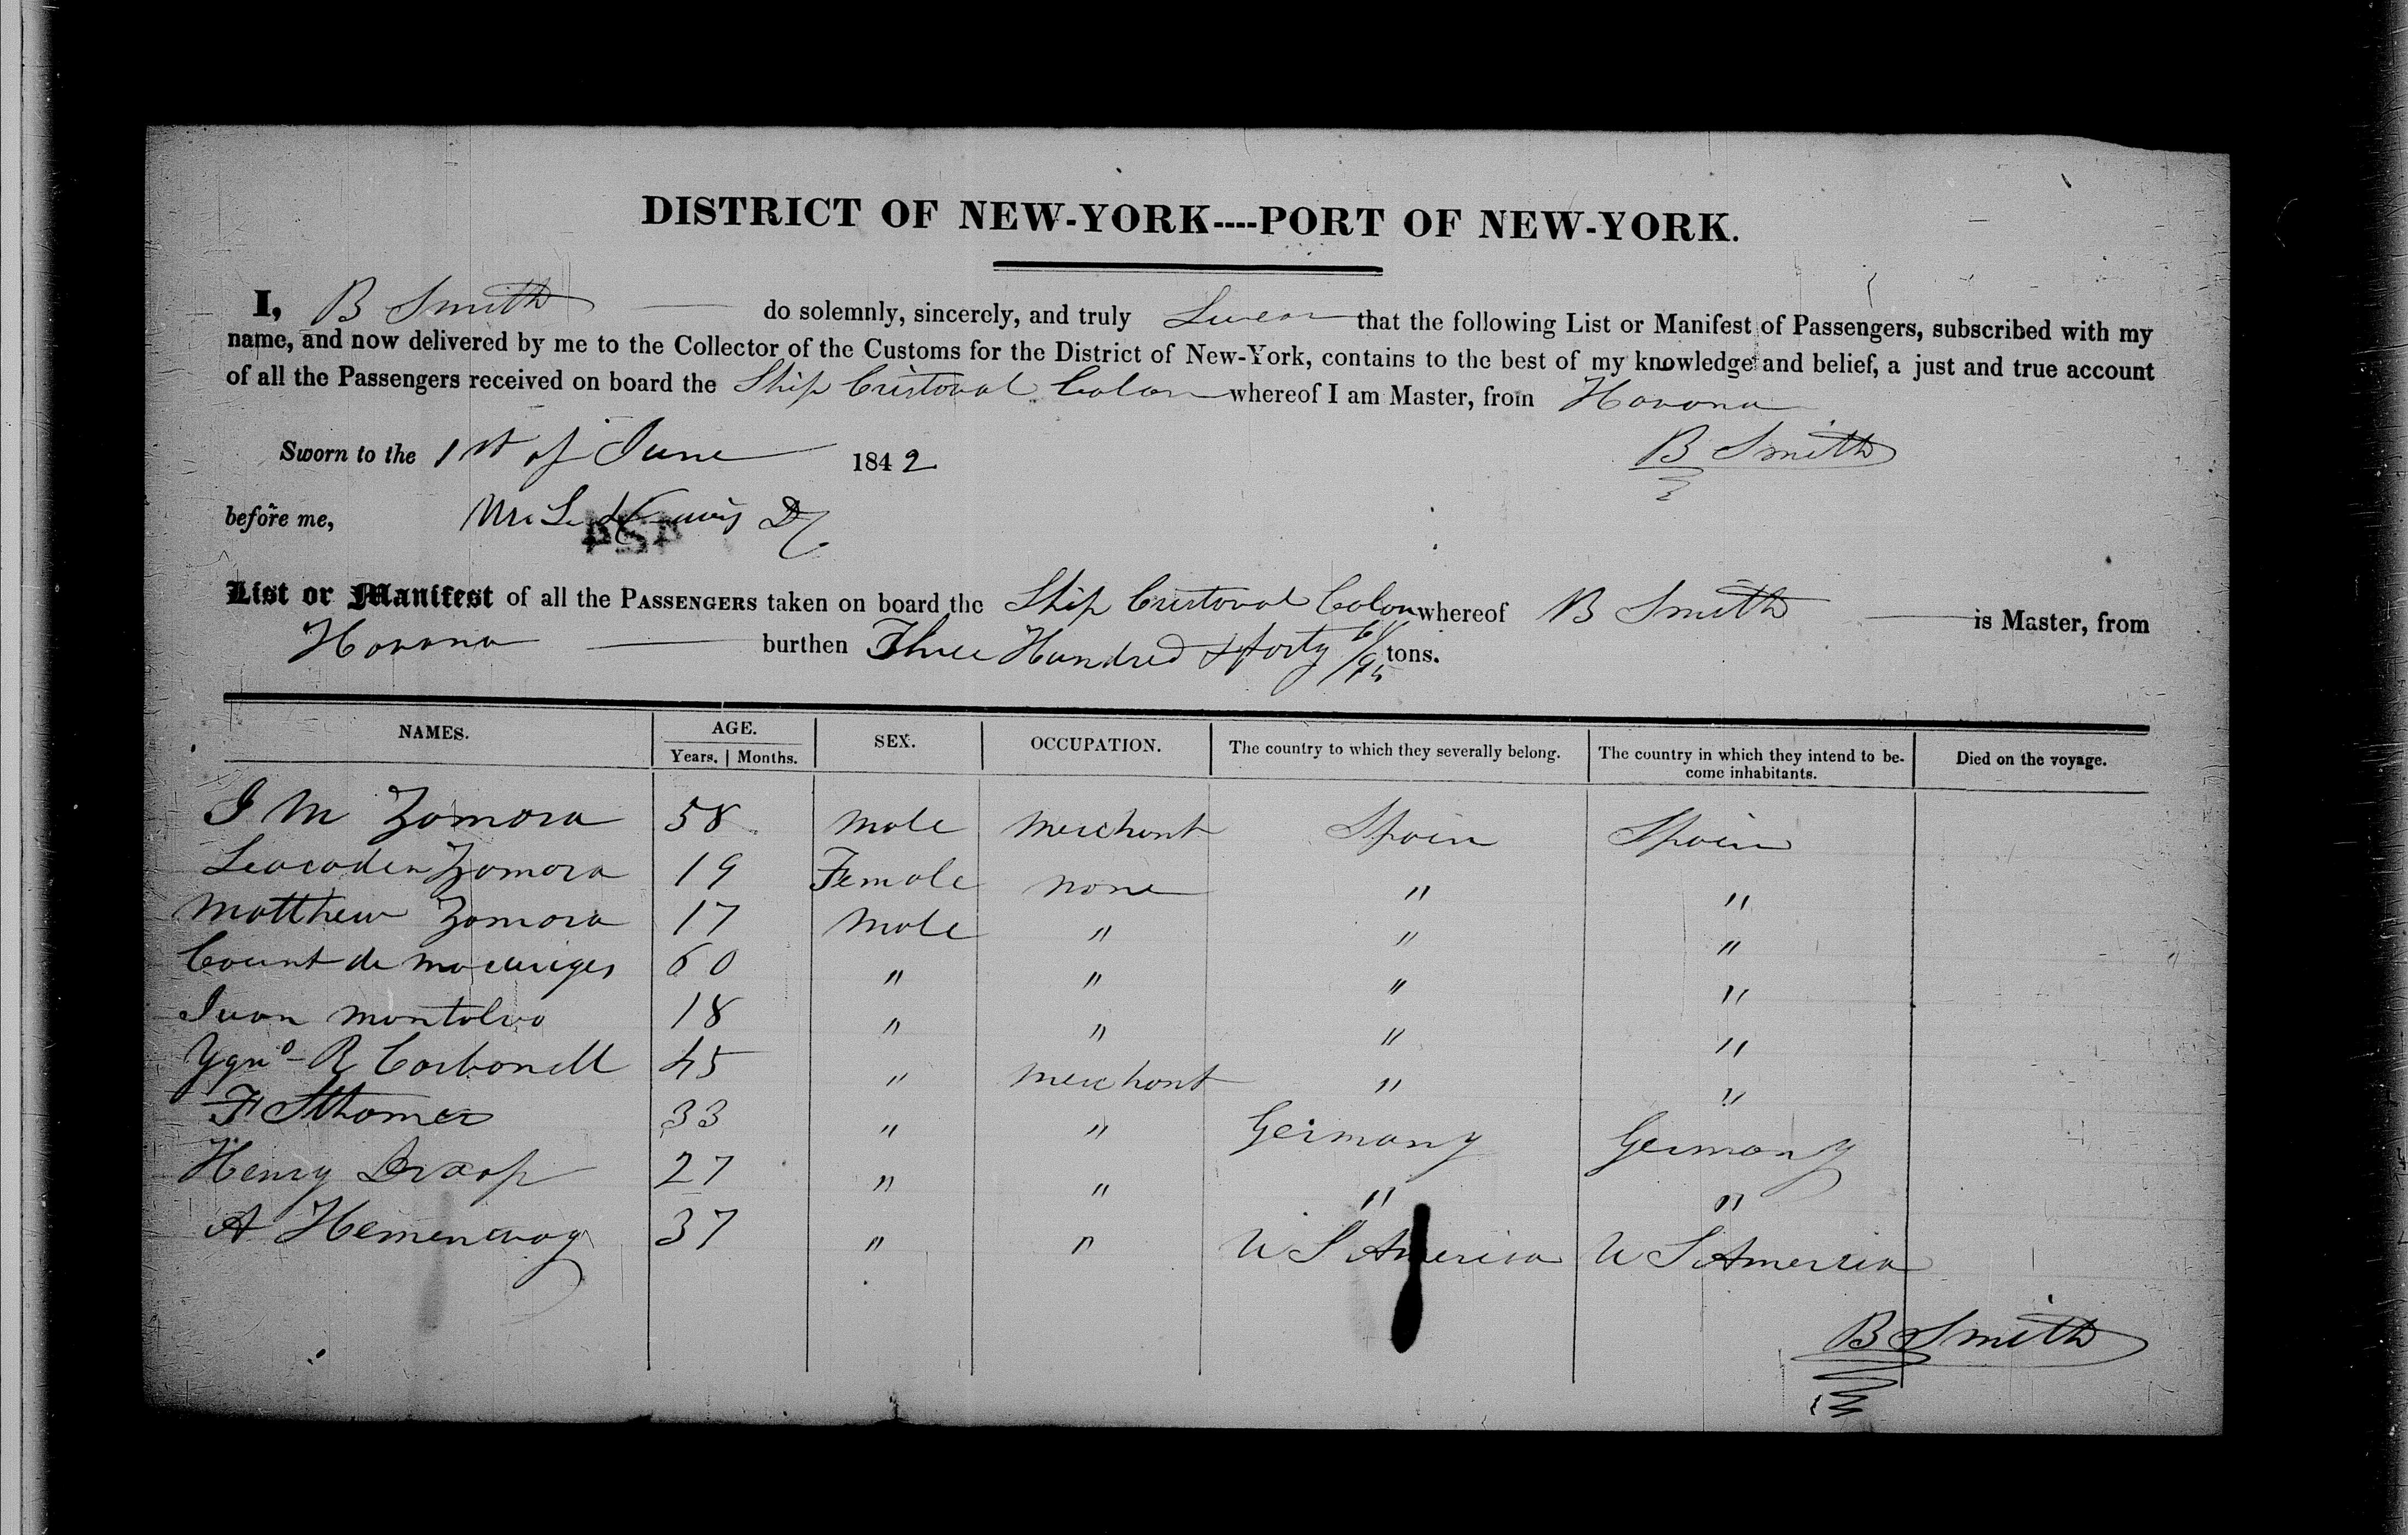 DISTRICT OF NEW-YORK----PORT OF NEW-YORK.
I, B Smith do solemnly, sincerely, and truly Swear that the following List or Manifest of Passengers, subscribed with my
name, and now delivered by me to the Collector of the Customs for the District of New-York, contains to the best of my knowledge and belief, a just and true account
of all the Passengers received on board the Ship Cristoval Colon whereof I am Master, from Havana
Sworn to the 1st of June 1842 B Smith
before me,
454
List or Manifest of all the PASSENGERS taken on board the Ship Cristoval Colon whereof B Smith is Master, from
Havana burthen Three Hundred & forty tons.
NAMES. AGE. SEX. OCCUPATION. The country to which they severally belong. The country in which they intend to be-
Years. Months. come inhabitants. Died on the voyage.
J M Zamora 58 Male Merchant Spain Spain
Leocadia Zamora 19 Female None " "
Matthew Zamora 17 Male " " "
Count de 60 " " " "
Juan Montalvo 18 " " " "
Ygno R Carbonell 45 " Merchant " "
F 33 " " Germany Germany
Henry 27 " " " "
A Hemenway 37 " " U S America U S America
B Smith